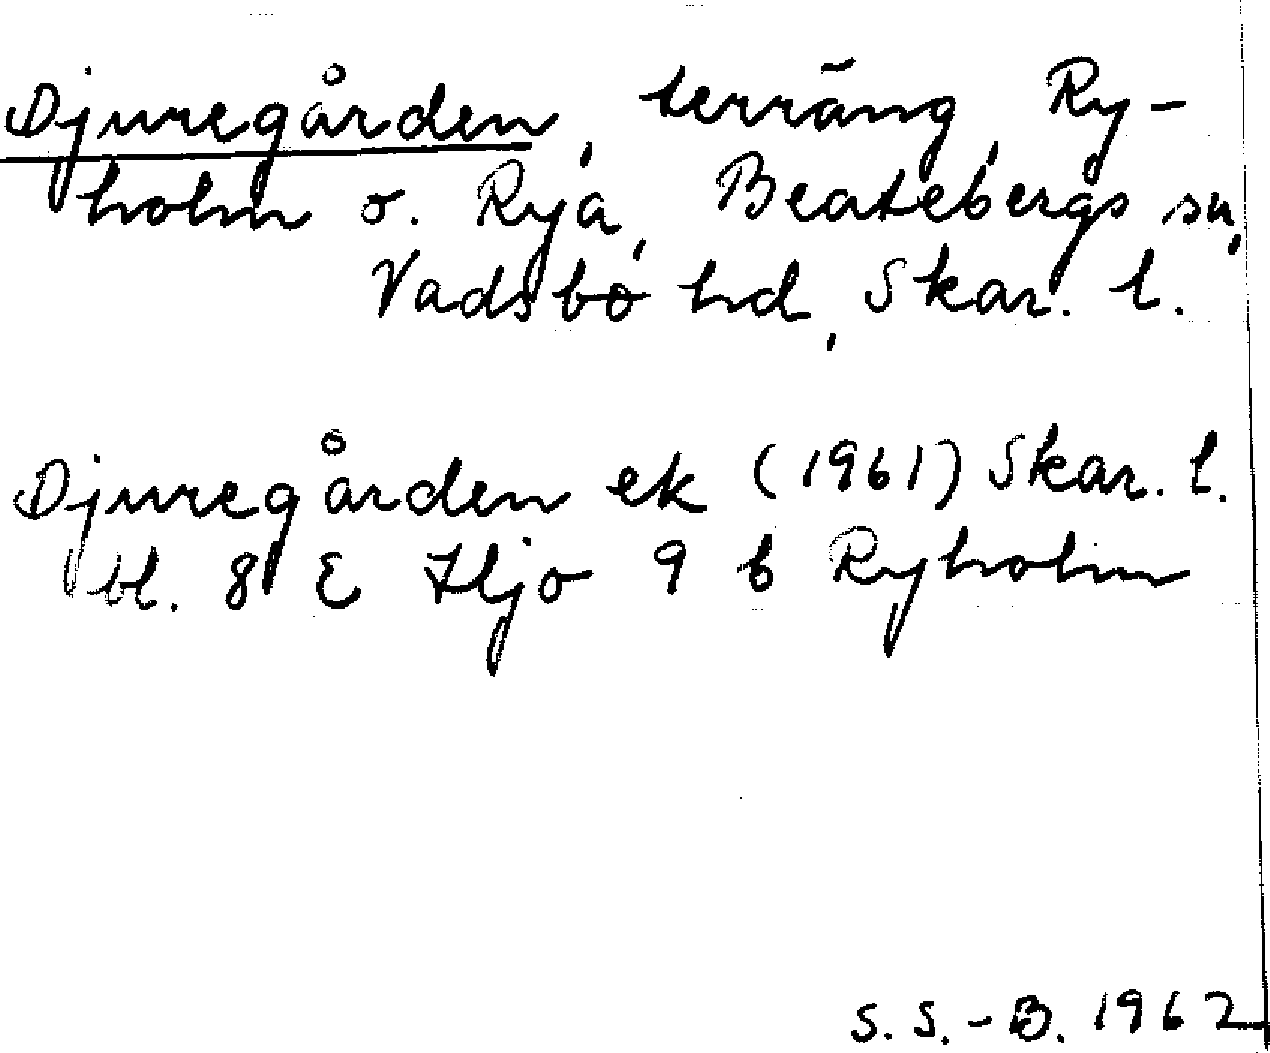 Djuregården, terräng, Ry-
holm o. Rya, Beatebergs sn,
Vadsbo hd, Skar. l.
Djuregården ek (1961) Skar. l.
bl. 8 E Hjo 9 b Ryholm
S.S.-B. 1962